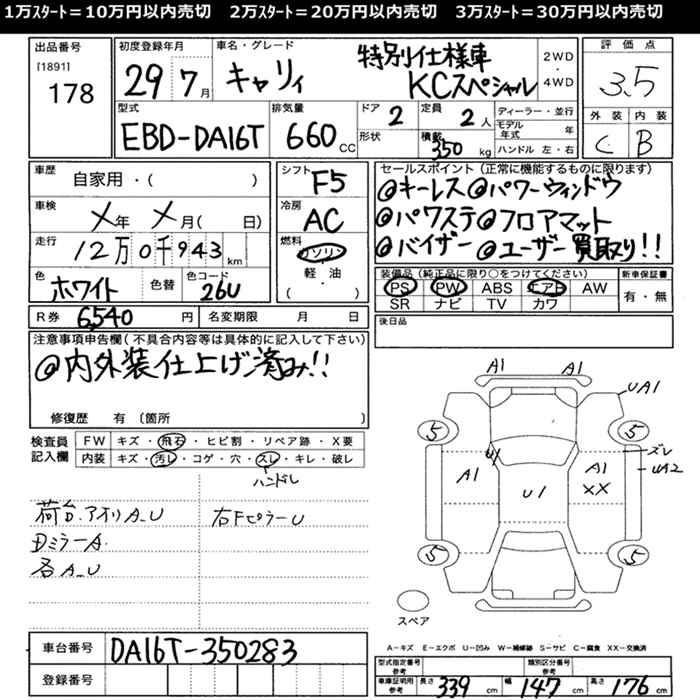 1万ｽﾀｰﾄ＝10万円以内売切　2万ｽﾀｰﾄ＝20万円以内売切　3万ｽﾀｰﾄ＝30万円以内売切
出品番号
[1891]
178
初度登録年月
29年7月
車名・グレード
キャリィ
特別仕様車
KCスペシャル
2WD
・
4WD
評価点
3.5
外装 内装
C B
型式
EBD-DA16T
排気量
660 CC
ドア 2
形状
定員 2 人
積載 350 kg
ディーラー・並行
モデル年式 年
ハンドル 左・右
車歴
自家用・( )
車検
メ年 メ月( 日)
走行
12万0千943 km
色
ホワイト
色替
色コード
26U
シフト
F5
冷房
AC
燃料
ガソリン
・
軽・油
( )
セールスポイント (正常に機能するものに限ります)
@キーレス @パワーウィンドウ
@パワステ @フロアマット
@バイザー @ユーザー買取り!!
装備品(純正品に限り○をつけてください)
PS PW ABS エアB AW
SR ナビ TV カワ
新車保証書
有・無
R券 6,540 円
名変期限 月 日
後日品
注意事項申告欄(不具合内容等は具体的に記入して下さい)
@内外装仕上げ済み!!
修復歴 有 〔箇所 〕
検査員記入欄
FW キズ・飛石・ヒビ割・リペア跡・X要
内装 キズ・汚レ・コゲ・穴・スレ・キレ・破レ
ハンドル
荷台.アオリA_U
右FピラーU
DミラーA.
各A_U
A1 A1
UA1
5 5
ズレ
UA2
U1
A1
A1
XX
U1
5 5
スペア
A－キズ E－エクボ U－凹み W－補修跡 S－サビ C－腐食 XX－交換済
車台番号
DA16T-350283
登録番号
型式指定番号
参考
類別区分番号
参考
車庫証明用
参考
長さ 339 cm 幅 147 cm 高さ 176 cm